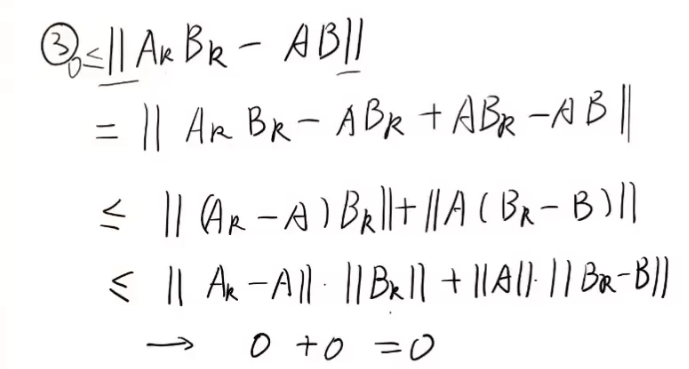 ③ 0≤||A_k B_k - AB||
= || A_k B_k - AB_k + AB_k - AB ||
≤ || (A_k - A) B_k || + || A ( B_k - B ) ||
≤ || A_k - A || · || B_k || + || A || · || B_k - B ||
→ 0 + 0 = 0